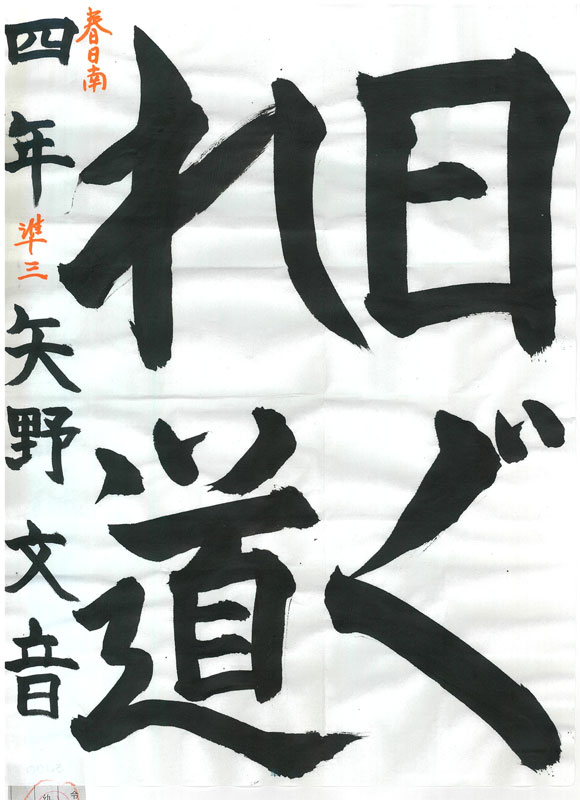 日ぐ
れ道
春日南
四年 準三 矢野文音